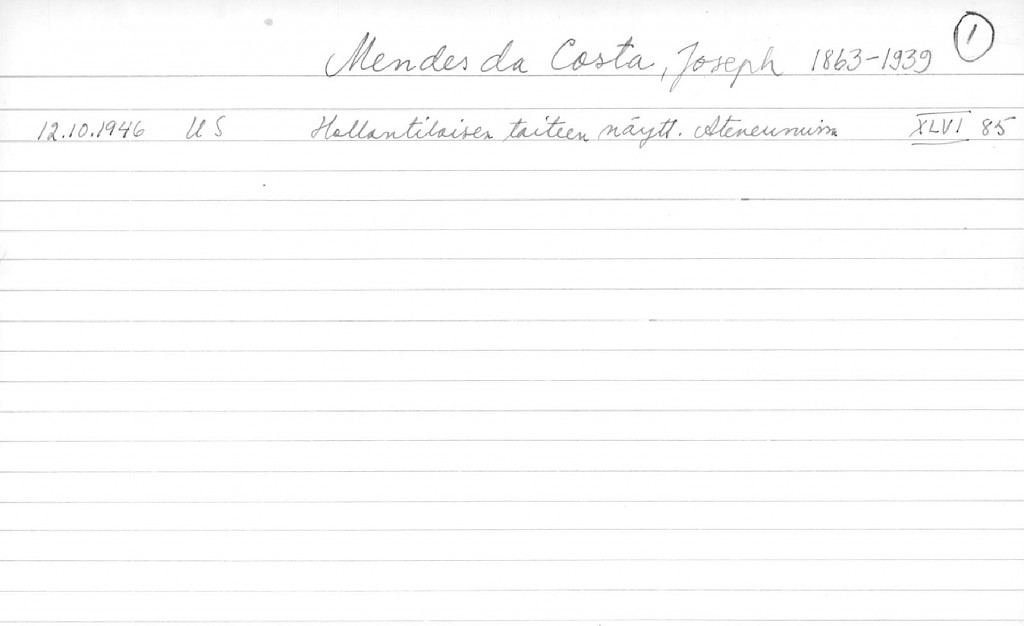 Mendes da Costa, Joseph 1863-1939 1
12.10.1946 U S Hollantilaisen taiteen näytt. Ateneumissa XLVI 85